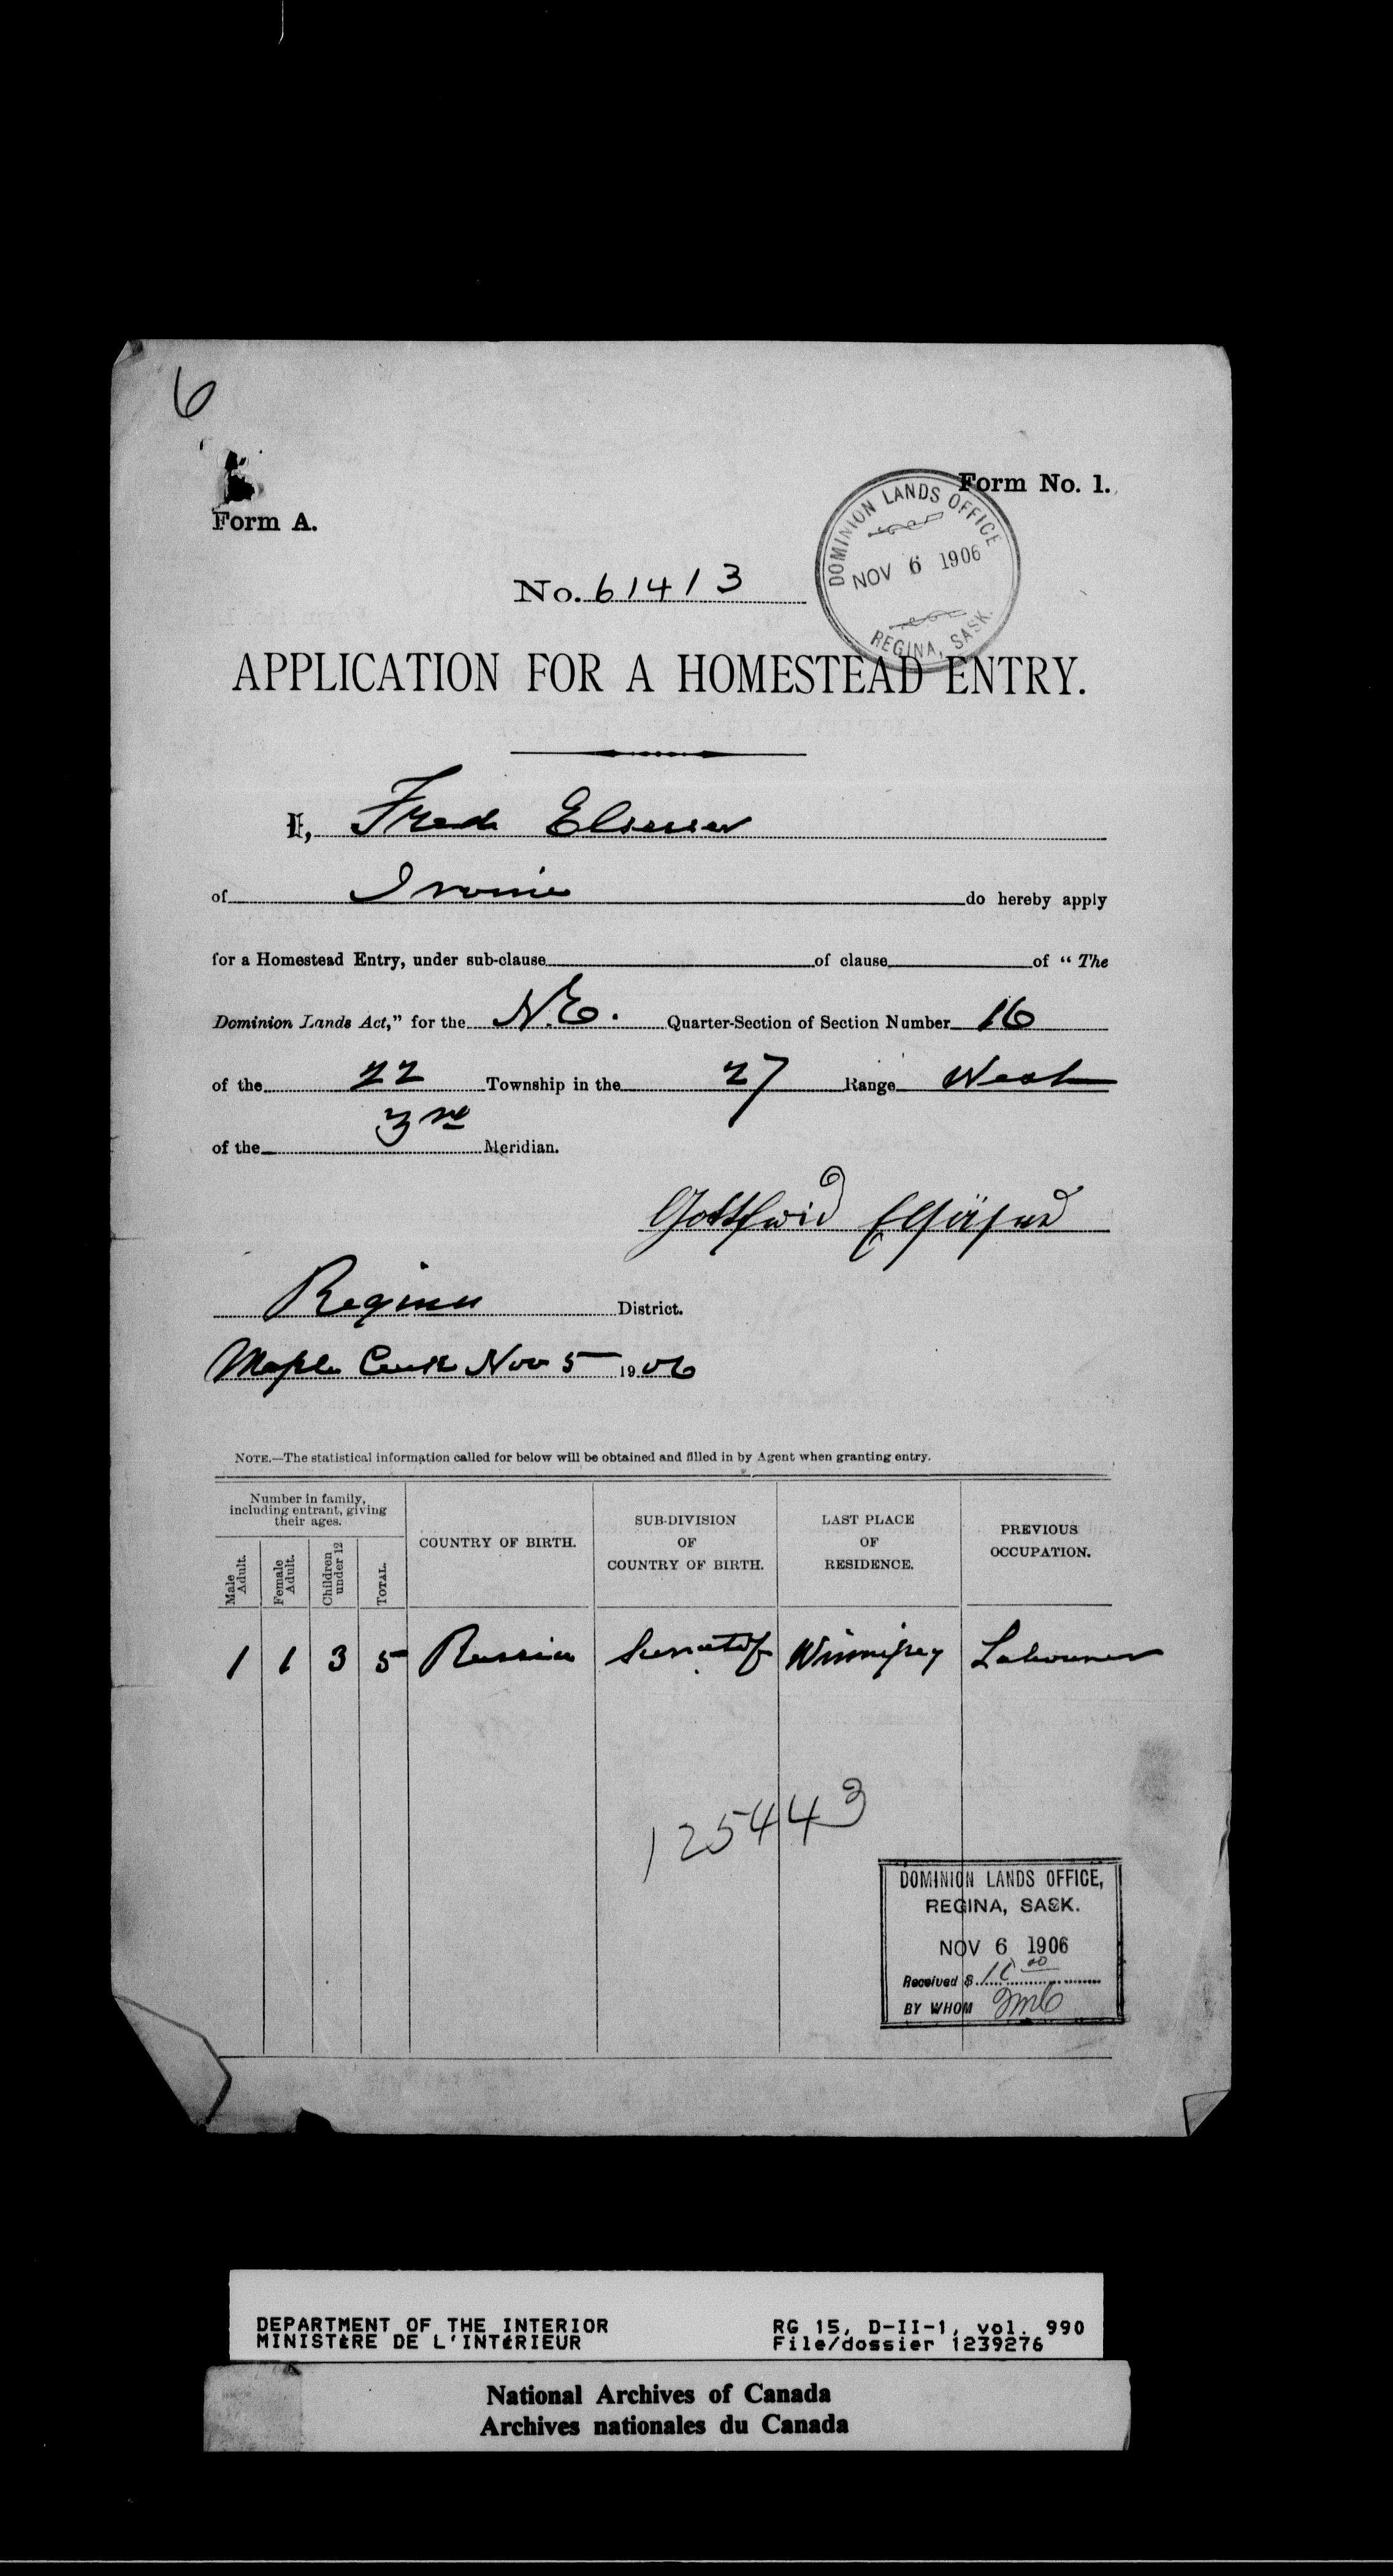 6
Form A.
Form No. 1.
DOMINION LANDS OFFICE
NOV 6 1906
REGINA, SASK.
No. 61413
APPLICATION FOR A HOMESTEAD ENTRY.
I, Fred
of Irvine do hereby apply
for a Homestead Entry, under sub-clause of clause of “ The
Dominion Lands Act,” for the N.E. Quarter-Section of Section Number 16
of the 22 Township in the 27 Range West
of the 3rd Meridian.
Gottfried
Regina District.
Maple Creek Nov 5 1906
NOTE.—The statistical information called for below will be obtained and filled in by Agent when granting entry.
Number in family, including entrant, giving their ages.
Male Adult.
Female Adult.
Children under 12
TOTAL.
COUNTRY OF BIRTH.
SUB-DIVISION OF COUNTRY OF BIRTH.
LAST PLACE OF RESIDENCE.
PREVIOUS OCCUPATION.
1 1 3 5 Russia Winnipeg Labourer
125443
DOMINION LANDS OFFICE,
REGINA, SASK.
NOV 6 1906
Received $ 10 00
BY WHOM
DEPARTMENT OF THE INTERIOR
MINISTÈRE DE L'INTÉRIEUR
RG 15, D-II-1, vol. 990
File/dossier 1239276
National Archives of Canada
Archives nationales du Canada